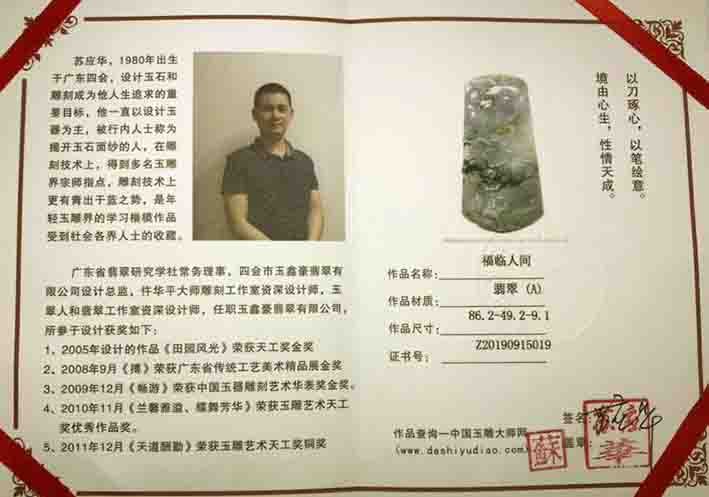 苏应华，1980年出生
于广东四会，设计玉石和
雕刻成为他人生追求的重
要目标，他一直以设计玉
器为主，被行内人士称为
揭开玉石面纱的人，在雕
刻技术上，得到多名玉雕
界宗师指点，雕刻技术上
更有青出于蓝之势，是年
轻玉雕界的学习楷模作品
受到社会各界人士的收藏。
广东省翡翠研究学社常务理事，四会市玉鑫豪翡翠有
限公司设计总监，仵华平大师雕刻工作室资深设计师，玉
翠人和翡翠工作室资深设计师，任职玉鑫豪翡翠有限公司，
所参于设计获奖如下：
1、2005年设计的作品《田园风光》荣获天工奖金奖
2、2008年9月《搏》荣获广东省传统工艺美术精品展金奖
3、2009年12月《畅游》荣获中国玉器雕刻艺术华表奖金奖。
4、2010年11月《兰馨雅溢、蝶舞芳华》荣获玉雕艺术天工
奖优秀作品奖。
5、2011年12月《天道酬勤》荣获玉雕艺术天工奖铜奖
以刀琢心，以笔绘意。
境由心生，性情天成。
作品名称：福临人间
作品材质：翡翠（A）
作品尺寸：86.2-49.2-9.1
证书号：Z20190915019
签名：
盖章：
作品查询—中国玉雕大师网
(www.dashiyudiao.com
蘇
華